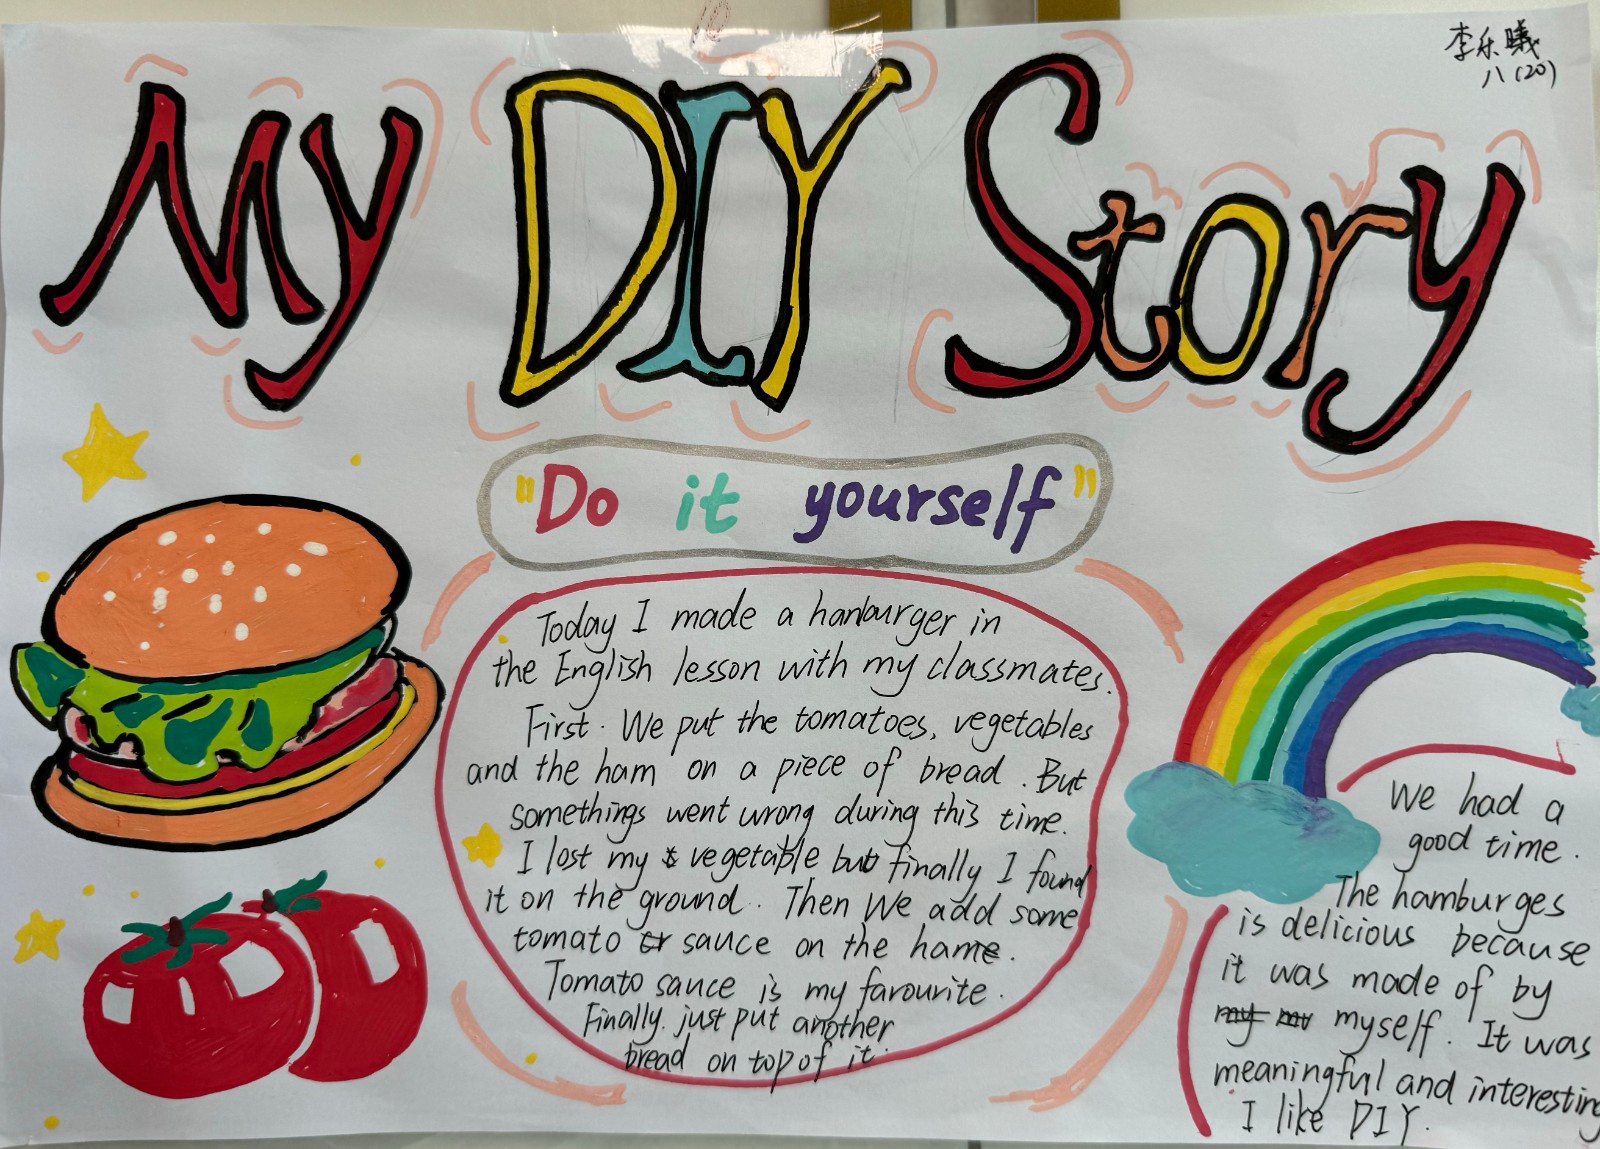 李乐曦
八(20)
My DIY Story
"Do it yourself"
Today I made a hanburger in
the English lesson with my classmates.
First. We put the tomatoes, vegetables
and the ham on a piece of bread. But
somethings went wrong during this time.
I lost my vegetable but finally I found
it on the ground. Then We add some
tomato sauce on the hame.
Tomato sauce is my farourite.
Finally. just put another
bread on top of it.
We had a
good time.
The hamburges
is delicious because
it was made of by
myself. It was
meaningful and interesting
I like DIY.